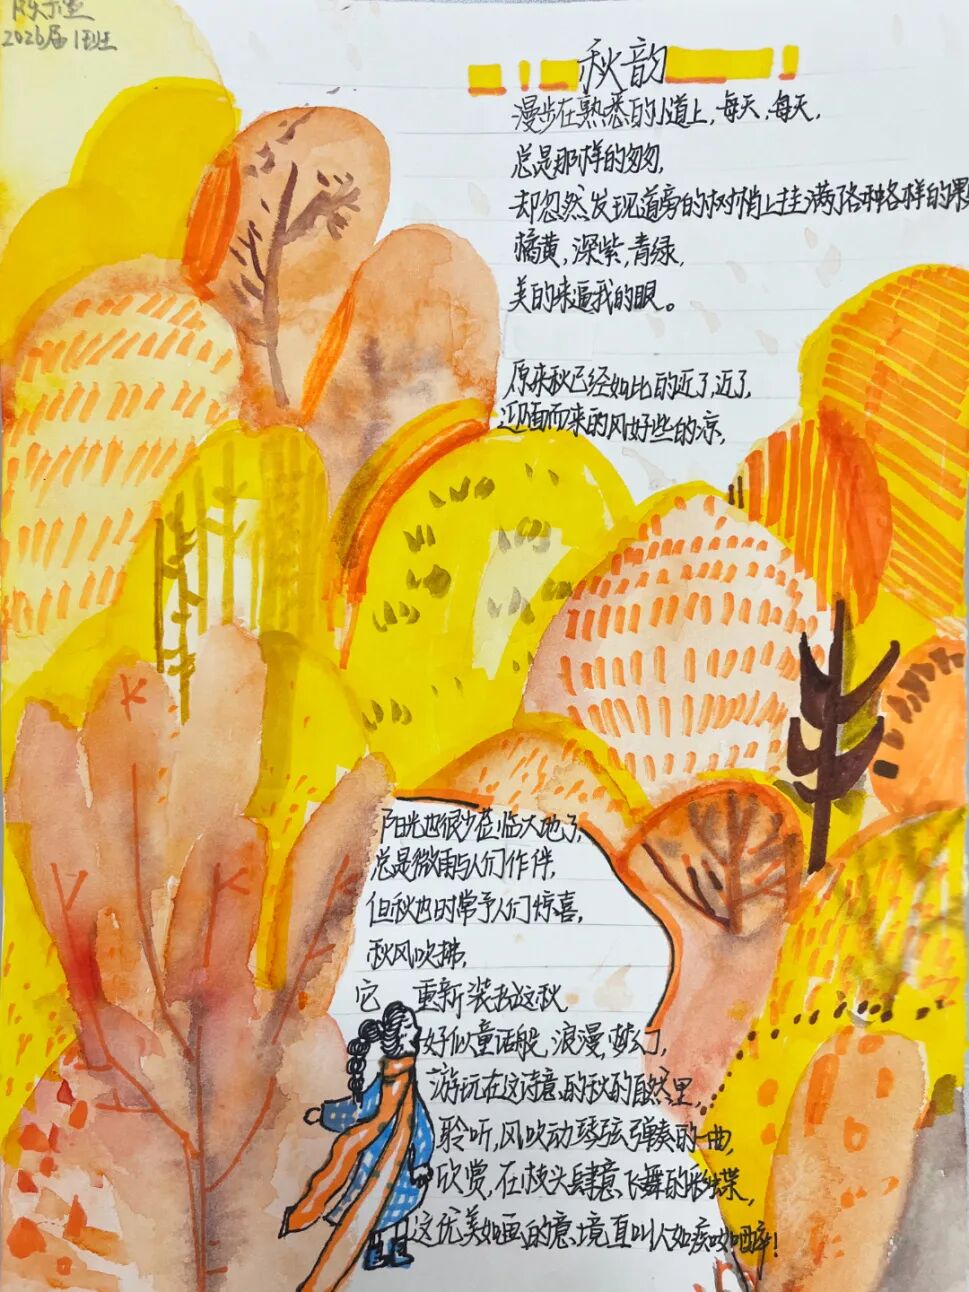 2026届1班
秋韵
漫步在熟悉的小道上,每天,每天,
总是那样的匆匆,
却忽然发现道旁的树梢上挂满了各种各样的果
橘黄,深紫,青绿,
美的来逼我的眼。
原来秋已经如此的近了,近了,
迎面而来的风好些的凉,
阳光也很少莅临大地了,
总是微雨与人们作伴,
但秋也时常予人们惊喜,
秋风吹拂,
它 重新装扮这秋
好似童话般,浪漫,梦幻,
游玩在这诗意的秋的自然里,
聆听,风吹动琴弦弹奏的一曲,
欣赏,在枝头肆意飞舞的彩蝶,
这优美如画的意境直叫人如痴如醉!